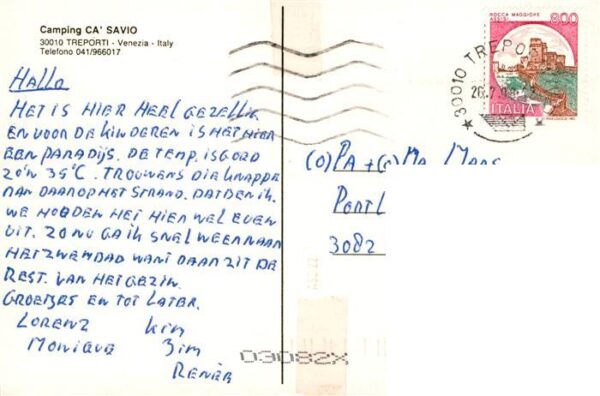 Camping CA' SAVIO
30010 TREPORTI - Venezia - Italy
Telefono 041/966017
HALLO
HET IS HIER HEEL GEZELLIG
EN VOOR DE KINDEREN IS HET HIER
EEN PARADIJS. DE TEMP. IS GOED
ZO'N 35°C. TROUWENS DIE KNAPPE
MAN DAAR OP HET STRAND. DAT BEN IK.
WE HOUDEN HET HIER WEL EVEN
UIT. ZO NU GA IK SNEL WEER NAAR
HET ZWEMBAD WANT DAAR ZIT DE
REST. VAN HET GEZIN.
GROETJES EN TOT LATER.
LORENZ KIM
MONIQUE
RENÉE
ROCCA MAGGIORE
800
ITALIA
30010 TREPO
(O)PA + (O)MA
3082
03082X